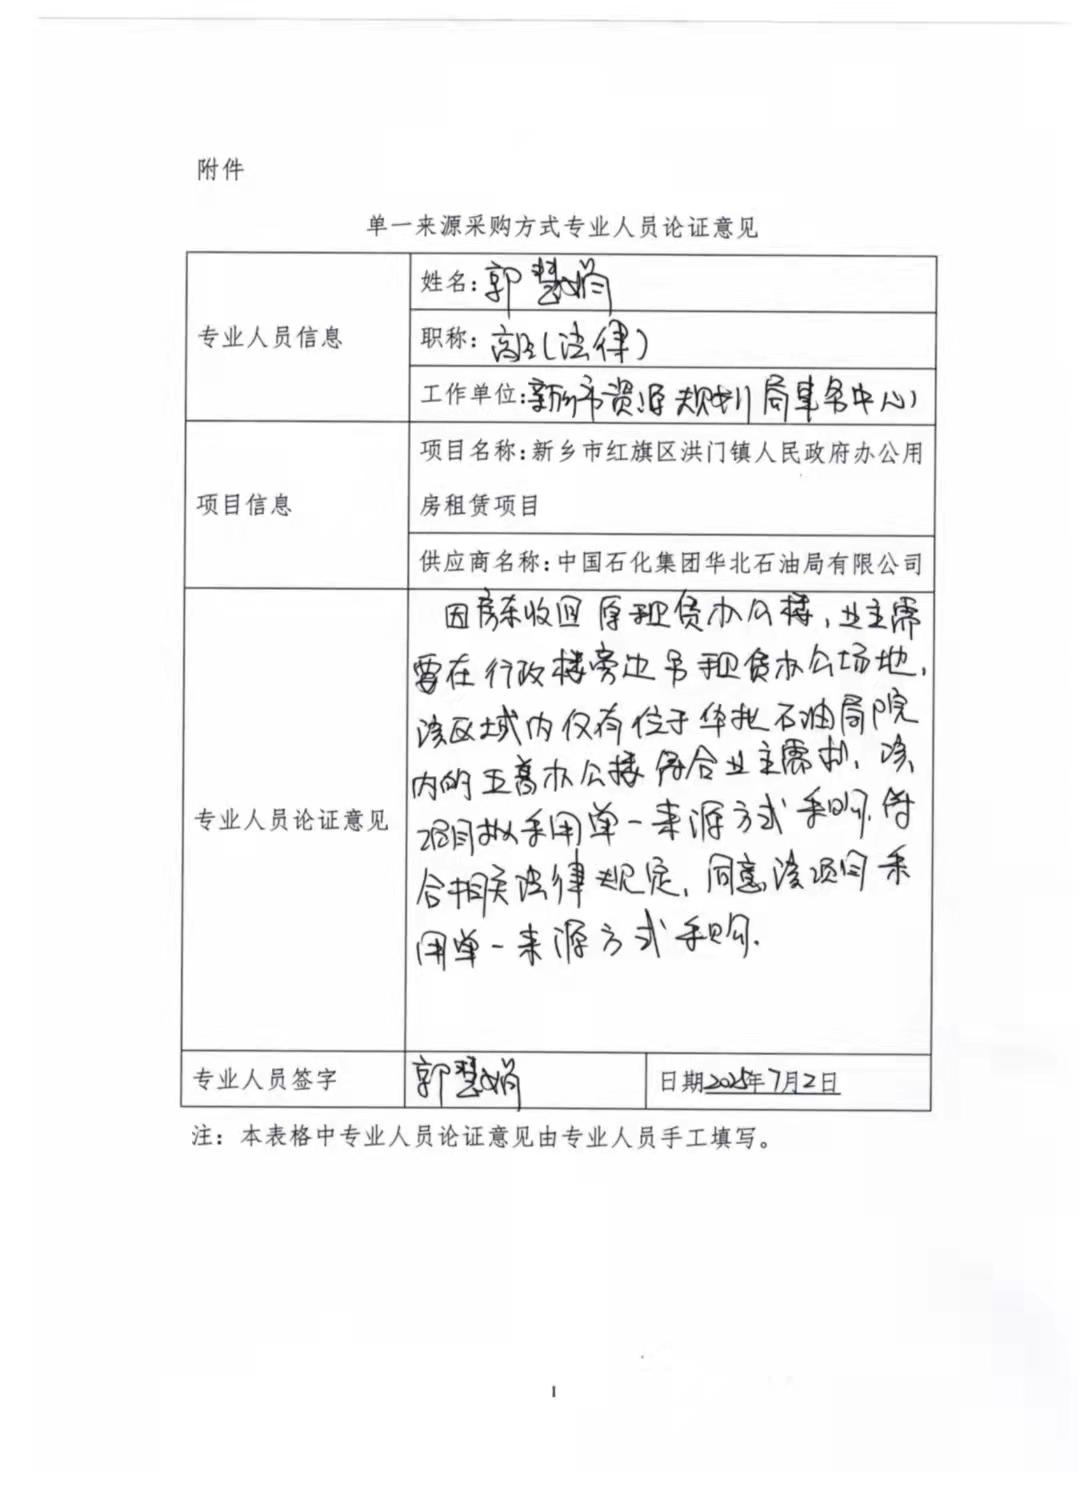 附件
单一来源采购方式专业人员论证意见
专业人员信息
姓名:郭慧娟
职称:高工(法律)
工作单位:新乡市资源规划局事务中心
项目信息
项目名称:新乡市红旗区洪门镇人民政府办公用
房租赁项目
供应商名称:中国石化集团华北石油局有限公司
专业人员论证意见
因房东收回原租赁办公楼,业主需
要在行政楼旁边另租赁办公场地,
该区域内仅有位于华北石油局院
内的五层办公楼符合业主需求,该
项目拟采用单一来源方式采购,符
合相关法律规定,同意该项目采
用单一来源方式采购.
专业人员签字
郭慧娟
日期2025年7月2日
注：本表格中专业人员论证意见由专业人员手工填写。
1